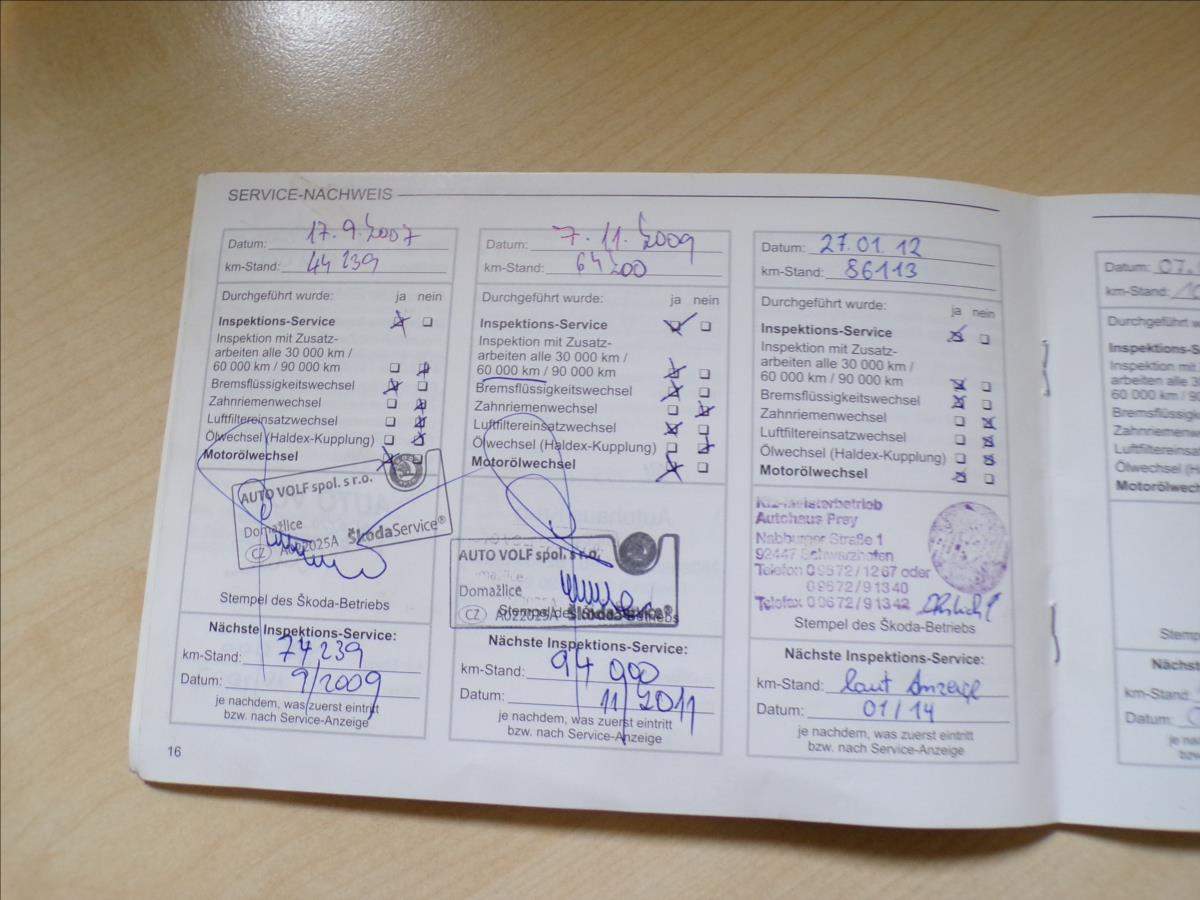 SERVICE-NACHWEIS
Datum: 17.9.2007
km-Stand: 44 239
Durchgeführt wurde: ja nein
Inspektions-Service
Inspektion mit Zusatz-
arbeiten alle 30 000 km /
60 000 km / 90 000 km
Bremsflüssigkeitswechsel
Zahnriemenwechsel
Luftfiltereinsatzwechsel
Ölwechsel (Haldex-Kupplung)
Motorölwechsel
AUTO VOLF spol. s r.o.
Domažlice
CZ A022025A ŠkodaService®
Stempel des Škoda-Betriebs
Nächste Inspektions-Service:
km-Stand: 74 239
Datum: 9/2009
je nachdem, was zuerst eintritt
bzw. nach Service-Anzeige
16
Datum: 7.11.2009
km-Stand: 64 200
Durchgeführt wurde: ja nein
Inspektions-Service
Inspektion mit Zusatz-
arbeiten alle 30 000 km /
60 000 km / 90 000 km
Bremsflüssigkeitswechsel
Zahnriemenwechsel
Luftfiltereinsatzwechsel
Ölwechsel (Haldex-Kupplung)
Motorölwechsel
AUTO VOLF spol. s r.o.
Domažlice
CZ A022025A ŠkodaService®
Stempel des Škoda-Betriebs
Nächste Inspektions-Service:
km-Stand: 94 000
Datum: 11/2011
je nachdem, was zuerst eintritt
bzw. nach Service-Anzeige
Datum: 27.01.12
km-Stand: 86113
Durchgeführt wurde: ja nein
Inspektions-Service
Inspektion mit Zusatz-
arbeiten alle 30 000 km /
60 000 km / 90 000 km
Bremsflüssigkeitswechsel
Zahnriemenwechsel
Luftfiltereinsatzwechsel
Ölwechsel (Haldex-Kupplung)
Motorölwechsel
Kfz-Meisterbetrieb
Autohaus Prey
Nabburger Straße 1
92447 Schwarzhofen
Telefon 0 96 72 / 12 67 oder
0 96 72 / 9 13 40
Telefax 0 96 72 / 9 13 42
Stempel des Škoda-Betriebs
Nächste Inspektions-Service:
km-Stand: laut Anzeige
Datum: 01/14
je nachdem, was zuerst eintritt
bzw. nach Service-Anzeige
Datum: 07.
km-Stand: 10
Durchgeführt w
Inspektions-S
Inspektion mit
arbeiten alle 3
60 000 km / 90
Bremsflüssigk
Zahnriemenw
Luftfiltereinsa
Ölwechsel (H
Motorölwechs
Stem
Nächst
km-Stand:
Datum:
je na
bzw